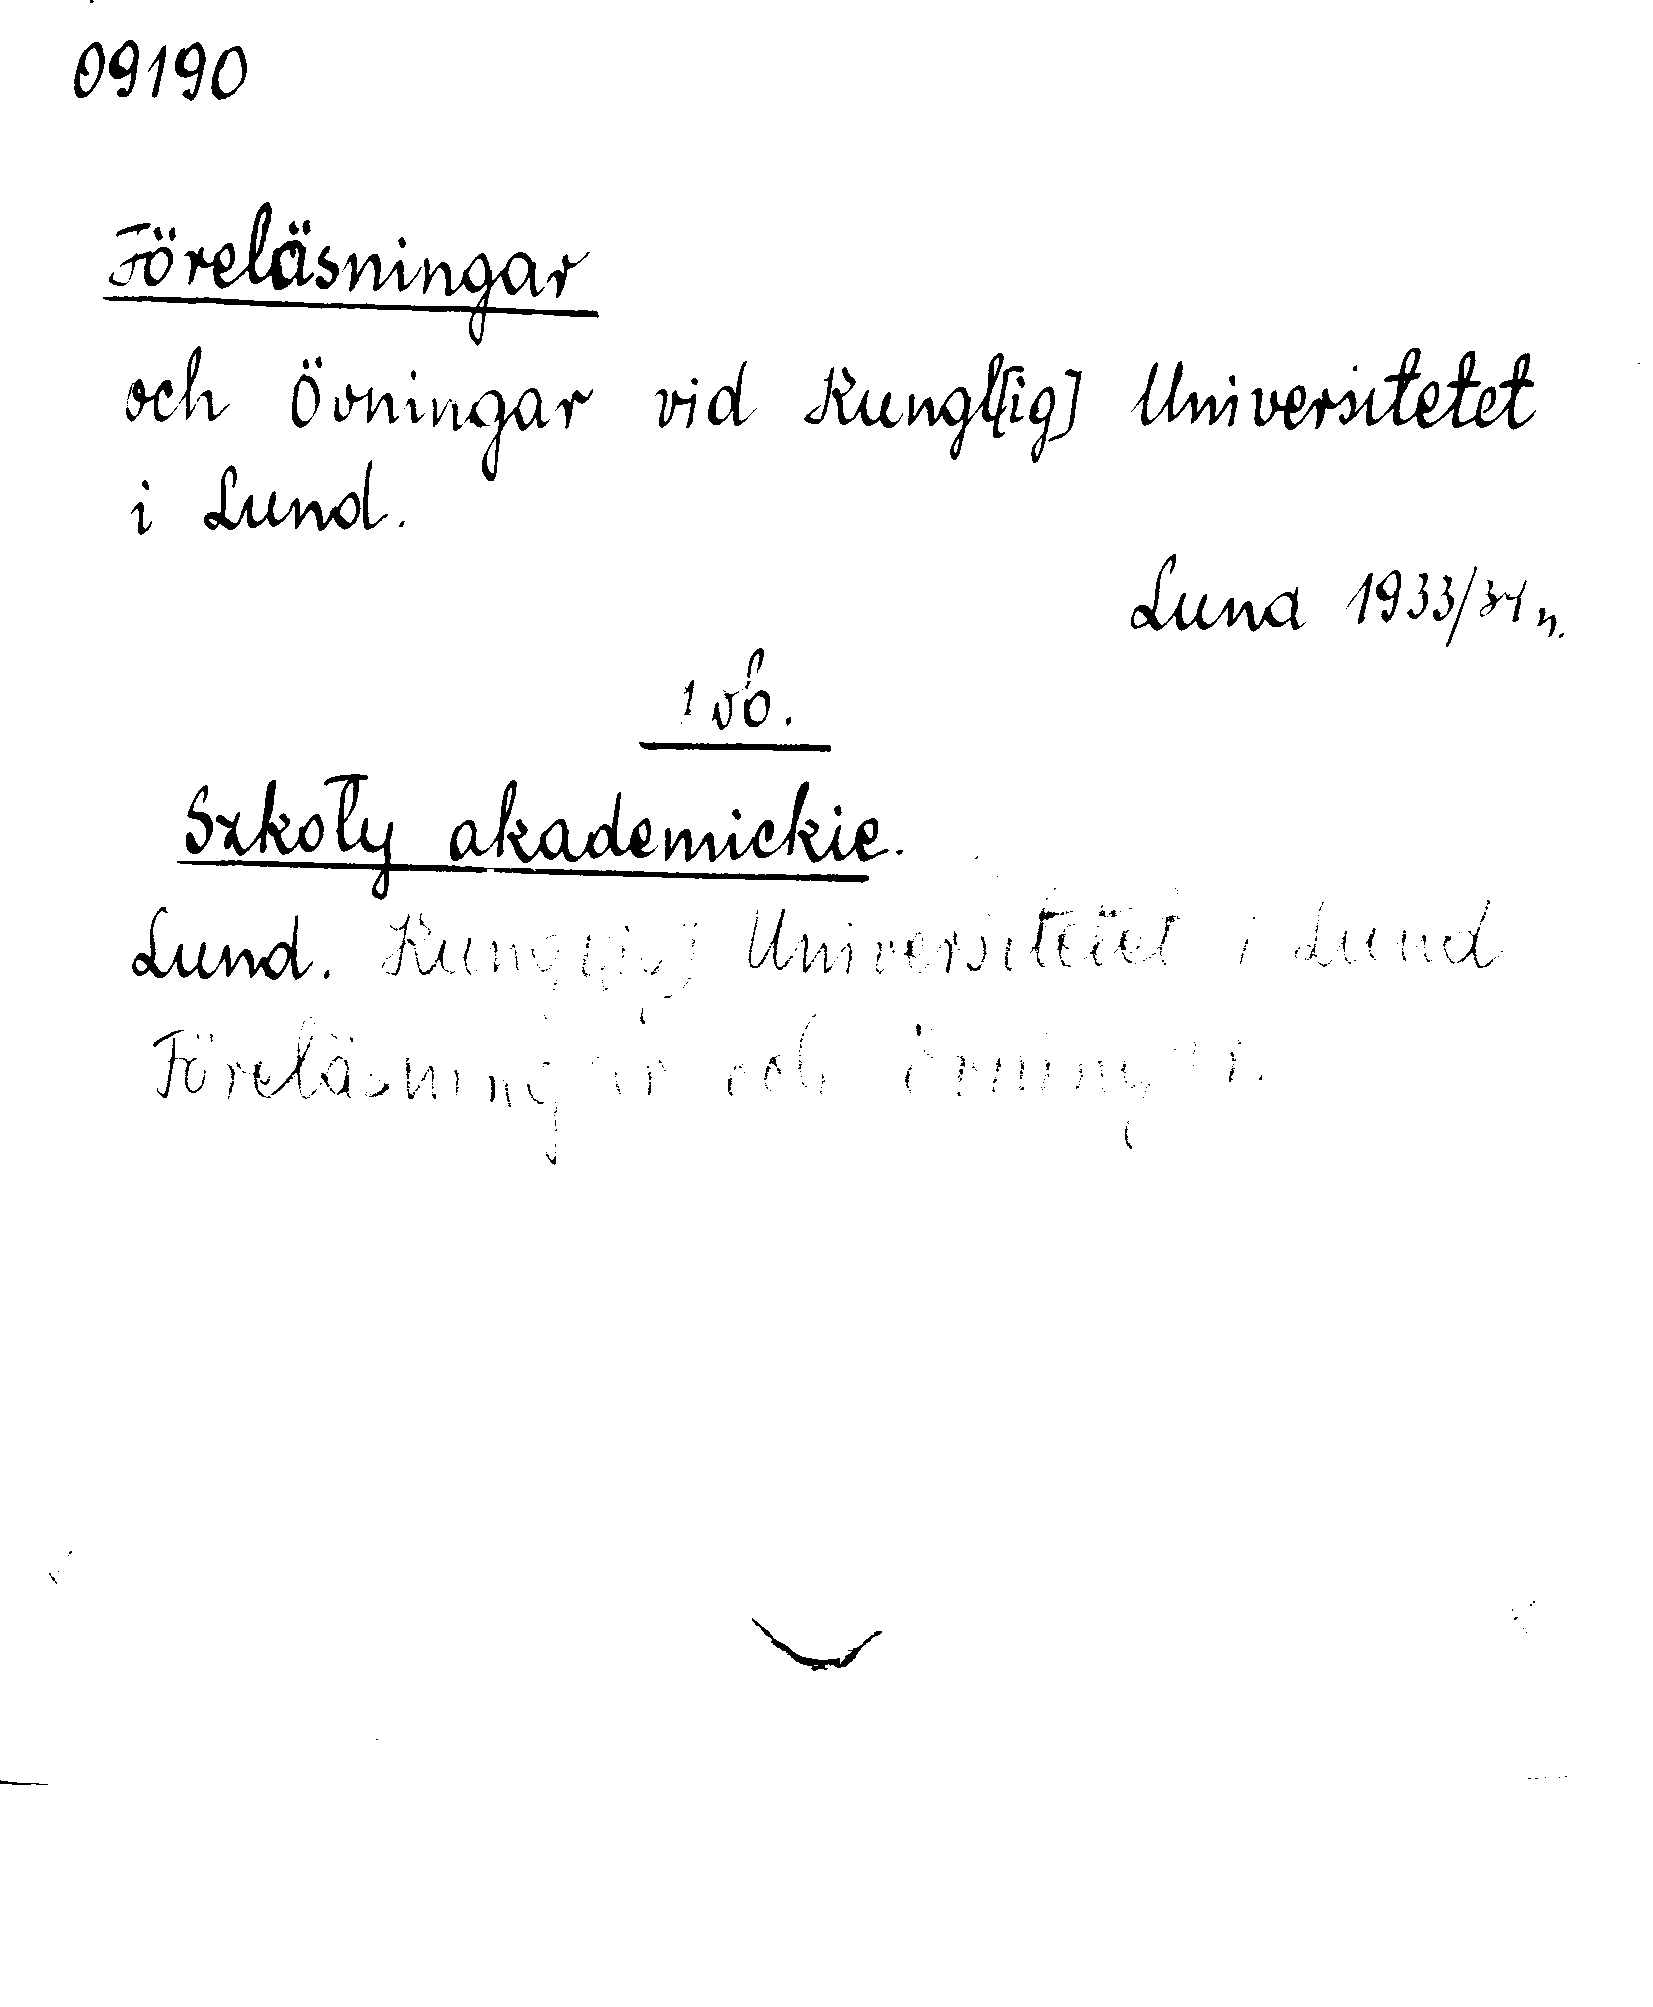 09190
Föreläsningar
och Övningar vid Kungl[ig] Universitetet
i Lund.
Luna 1933/34 n.
1 ób.
Szkoły akademickie.
Lund. Kungl[ig] Universitetet i Lund
Föreläsningar och övningar.